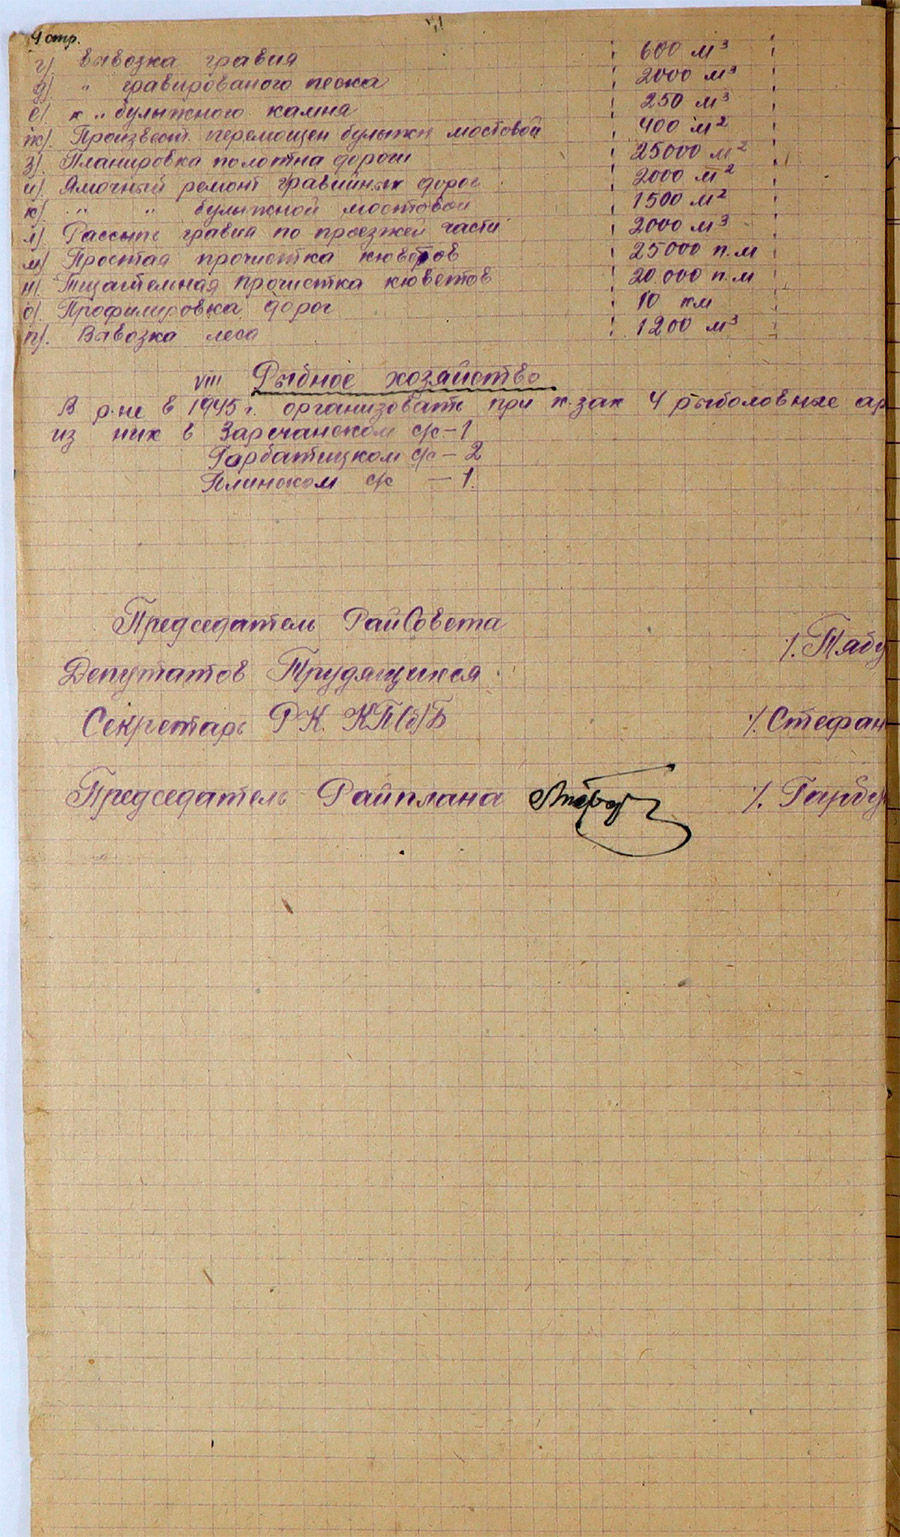 4 стр.
г/. вывозка гравия 600 м³
д/ " гравированого песка 2000 м³
е/. " булыжного камня 250 м³
ж/. Произвест. перемощен булыжн мостовой 400 м²
з/. Планировка полотна дороги 25000 м²
и/. Ямочный ремонт гравийных дорог 2000 м²
к/. " " булыжной мостовой 1500 м²
л/. Рассыпь гравия по проезжей части 2000 м³
м/. Простая прочистка кюветов 25000 п.м
н/. Тщательная прочистка кюветов 20.000 п.м
о/. Профилировка дорог 10 км
п/. Вывозка леса 1200 м³
VIII Рыбное хозяйство
В р-не в 1945 г. организовать при к-зах 4 рыболовные ар
из них в Заречанском с/с – 1
Горбатицком с/с – 2
Плинском с/с – 1.
Председатель РайСовета
Депутатов Трудящихся /. Тябу
Секретарь РК. КП(б)Б /. Стефан
Председатель Райплана /. Гарбу